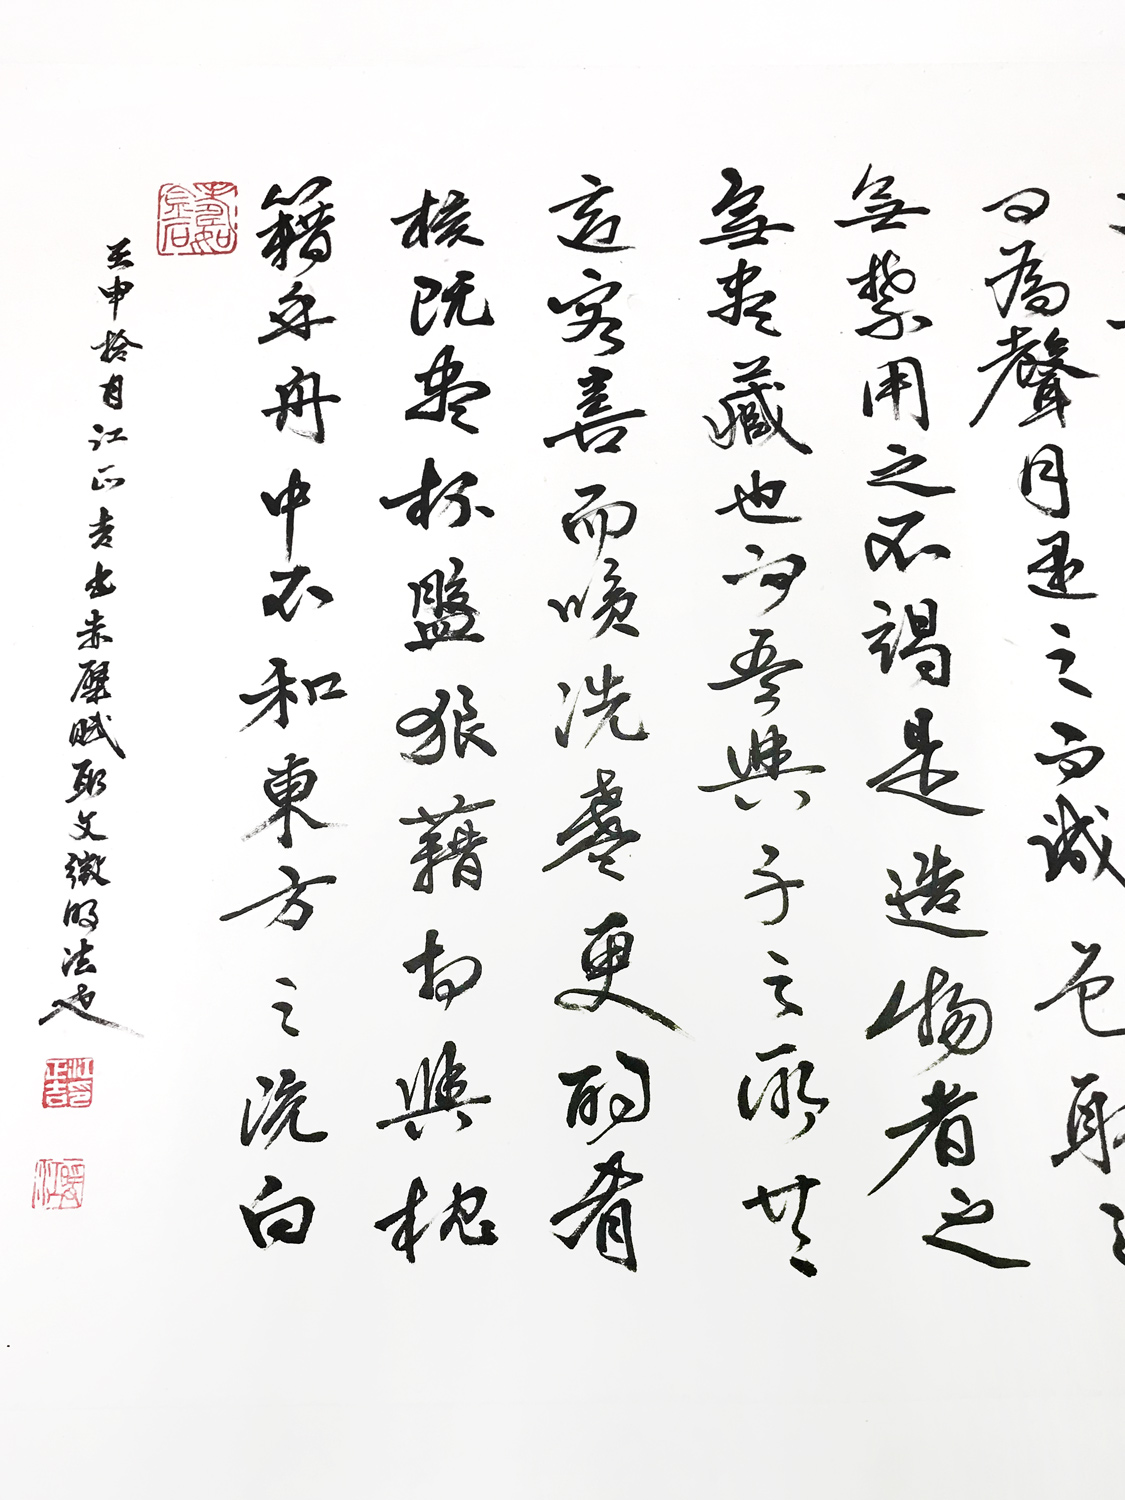 而為聲目遇之而誠色取之
無禁用之不竭是造物者之
無盡藏也而吾與子之所共
適客喜而咲洗盞更酌肴
核既盡杯盤狼藉相與枕
籍乎舟中不知東方之既白
壬申拾月江正吉書赤壁賦取文徵明法也
江正吉印